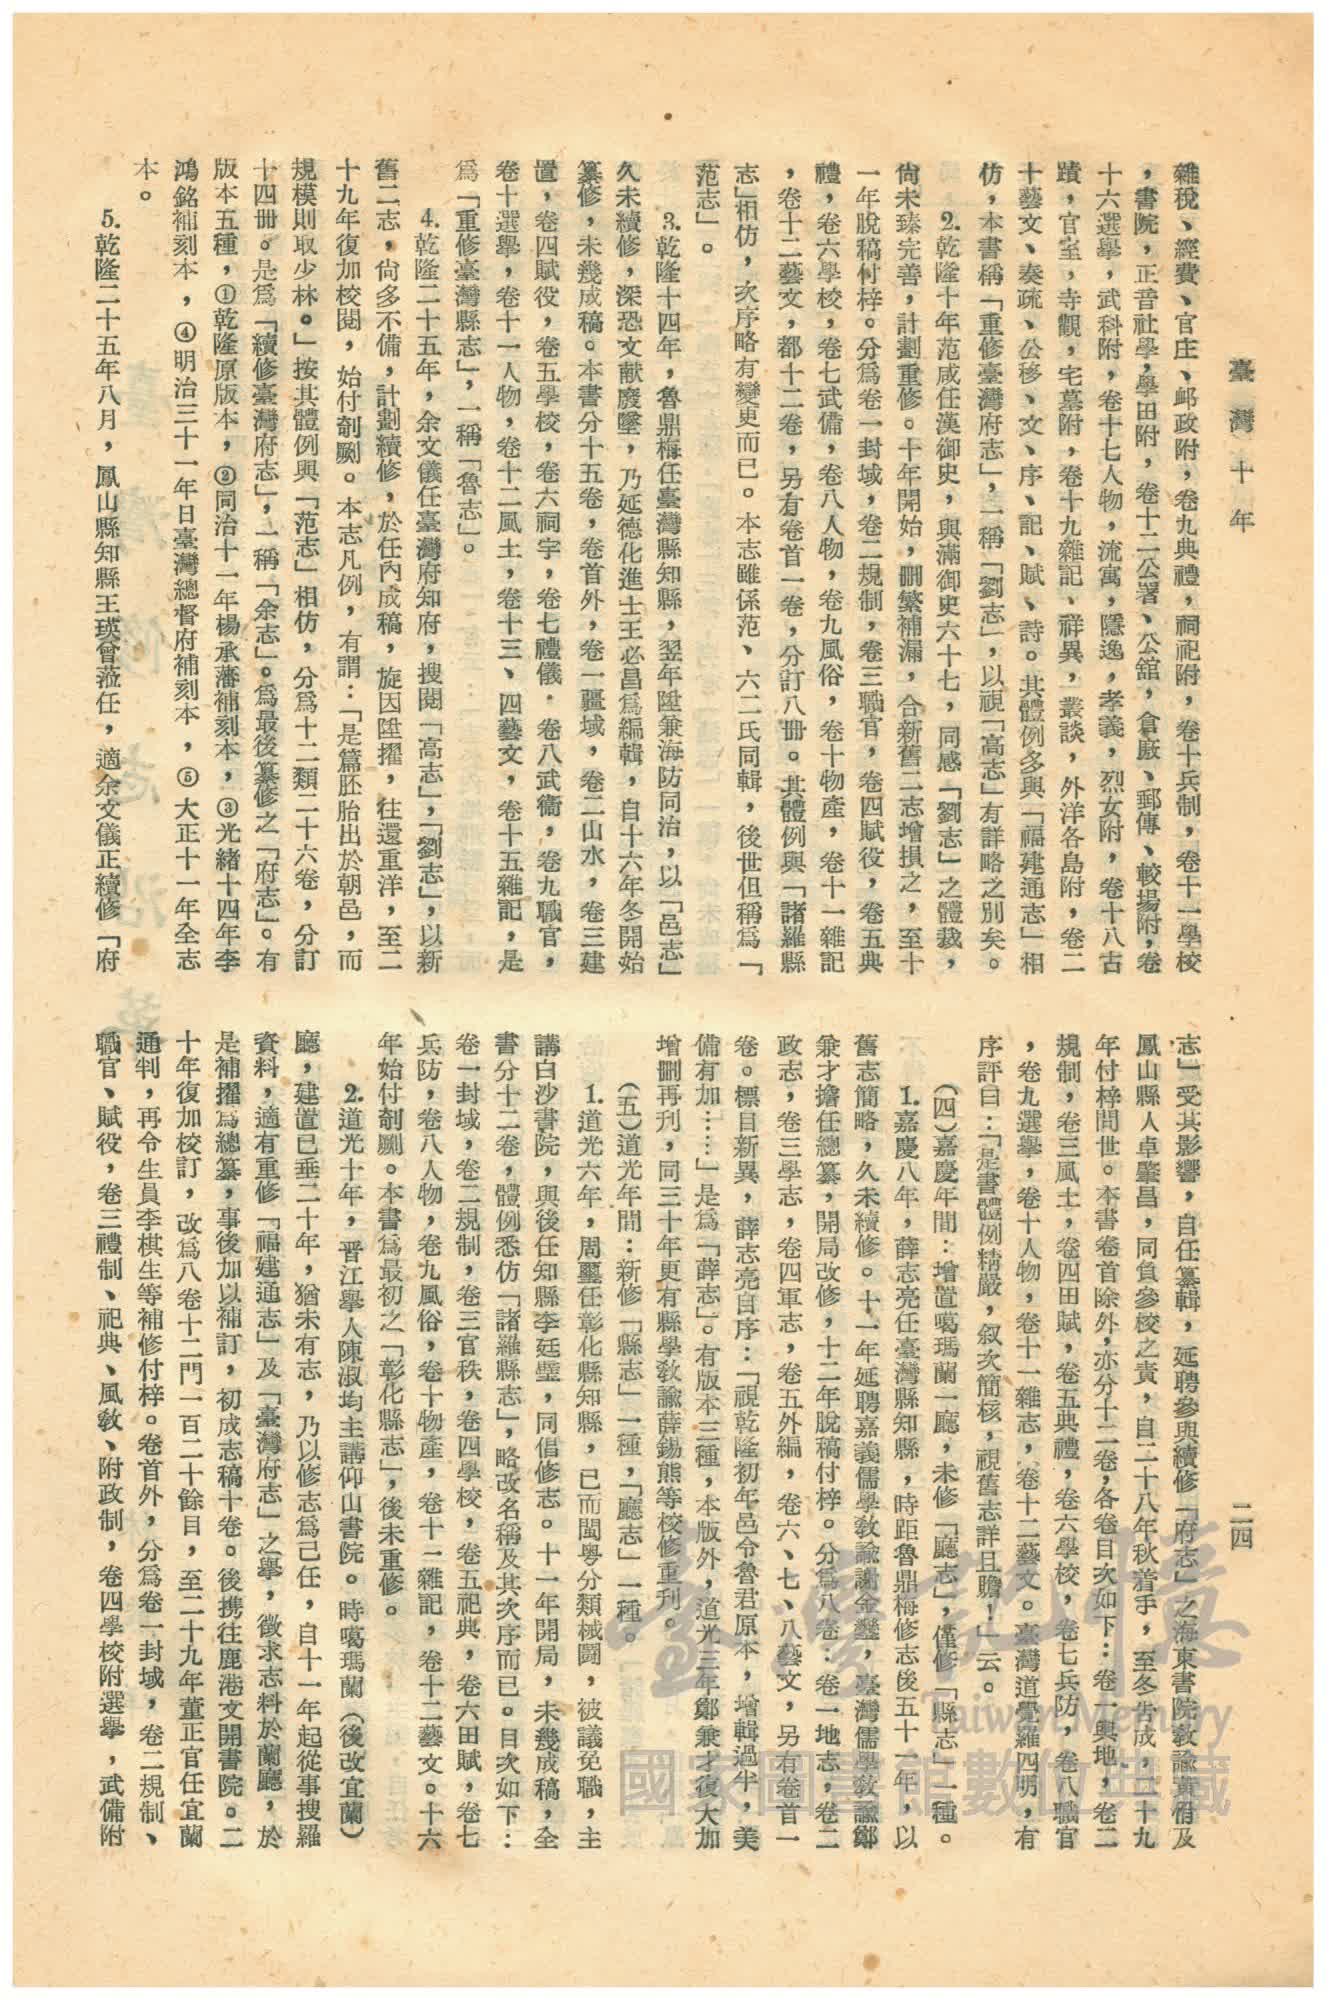 臺灣十年
二四
雜稅、經費、官庄、邮政附，卷九典禮，祠祀附，卷十兵制，卷十一學校
，書院，正音社學，學田附，卷十二公署、公舘，倉廒、郵傳、較場附，卷
十六選舉，武科附，卷十七人物，流寓，隱逸，孝義，烈女附，卷十八古
蹟，官室，寺觀，宅墓附，卷十九雜記、祥異，叢談，外洋各島附，卷二
十藝文、奏疏、公移、文、序、記、賦、詩。其體例多與「福建通志」相
仿，本書稱「重修臺灣府志」，一稱「劉志」，以視「高志」有詳略之別矣。
2.乾隆十年范咸任漢御史，與滿御史六十七，同感「劉志」之體裁，
尙未臻完善，計劃重修。十年開始，刪繁補漏，合新舊二志增損之，至十
一年脫稿付梓。分爲卷一封域，卷二規制，卷三職官，卷四賦役，卷五典
禮，卷六學校，卷七武備，卷八人物，卷九風俗，卷十物產，卷十一雜記
，卷十二藝文，都十二卷，另有卷首一卷，分訂八冊。其體例與「諸羅縣
志」相仿，次序略有變更而已。本志雖係范、六二氏同輯，後世但稱爲「
范志」。
3.乾隆十四年，魯鼎梅任臺灣縣知縣，翌年陞兼海防同治，以「邑志」
久未續修，深恐文献廢墜，乃延德化進士王必昌爲編輯，自十六年冬開始
纂修，未幾成稿。本書分十五卷，卷首外，卷一疆域，卷二山水，卷三建
置，卷四賦役，卷五學校，卷六祠宇，卷七禮儀．卷八武衞，卷九職官，
卷十選舉，卷十一人物，卷十二風土，卷十三、四藝文，卷十五雜記，是
爲「重修臺灣縣志」，一稱「魯志」。
4.乾隆二十五年，余文儀任臺灣府知府，搜閱「高志」，「劉志」，以新
舊二志，尙多不備，計劃續修，於任內成稿，旋因陞擢，往還重洋，至二
十九年復加校閱，始付剞劂。本志凡例，有謂：「是篇胚胎出於朝邑，而
規模則取少林。」按其體例與「范志」相仿，分爲十二類二十六卷，分訂
十四冊。是爲「續修臺灣府志」，一稱「余志」。爲最後纂修之「府志」。有
版本五種，①乾隆原版本，②同治十一年楊承藩補刻本，③光緒十四年李
鴻銘補刻本，④明治三十一年日臺灣總督府補刻本，⑤大正十一年全志
本。
5.乾隆二十五年八月，鳳山縣知縣王瑛曾蒞任，適余文儀正續修「府
志」受其影響，自任纂輯，延聘參與續修「府志」之海東書院敎諭黃佾及
鳳山縣人卓肇昌，同負參校之責，自二十八年秋着手，至冬告成，二十九
年付梓問世。本書卷首除外，亦分十二卷，各卷目次如下：卷一輿地，卷二
規制，卷三風土，卷四田賦，卷五典禮，卷六學校，卷七兵防，卷八職官
，卷九選舉，卷十人物，卷十一雜志，卷十二藝文。臺灣道覺羅四明，有
序評曰：「是書體例精嚴，叙次簡核，視舊志詳且贍！」云。
（四）嘉慶年間：增置噶瑪蘭一廳，未修「廳志」，僅修「縣志」一種。
1.嘉慶八年，薛志亮任臺灣縣知縣，時距魯鼎梅修志後五十一年，以
舊志簡略，久未續修。十一年延聘嘉義儒學敎諭謝金鑾，臺灣儒學敎諭鄭
兼才擔任總纂，開局改修，十二年脫稿付梓。分爲八卷：卷一地志，卷二
政志，卷三學志，卷四軍志，卷五外編，卷六、七、八藝文，另有卷首一
卷。標目新異，薛志亮自序：「視乾隆初年邑令魯君原本，增輯過半，美
備有加……」是爲「薛志」。有版本三種，本版外，道光三年鄭兼才復大加
增刪再刊，同三十年更有縣學敎諭薛錫熊等校修重刊。
（五）道光年間：新修「縣志」一種，「廳志」一種。
1.道光六年，周璽任彰化縣知縣，已而閩粤分類械鬪，被議免職，主
講白沙書院，與後任知縣李廷璧，同倡修志。十一年開局，未幾成稿，全
書分十二卷，體例悉仿「諸羅縣志」，略改名稱及其次序而已。目次如下：
卷一封域，卷二規制，卷三官秩，卷四學校，卷五祀典，卷六田賦，卷七
兵防，卷八人物，卷九風俗，卷十物產，卷十一雜記，卷十二藝文。十六
年始付剞劂。本書爲最初之「彰化縣志」，後未重修。
2.道光十年，晋江舉人陳淑均主講仰山書院。時噶瑪蘭（後改宜蘭）
廳，建置已垂二十年，猶未有志，乃以修志爲己任，自十一年起從事搜羅
資料，適有重修「福建通志」及「臺灣府志」之擧，徵求志料於蘭廳，於
是補擢爲總纂，事後加以補訂，初成志稿十卷。後携往鹿港文開書院。二
十年復加校訂，改爲八卷十二門一百二十餘目，至二十九年董正官任宜蘭
通判，再令生員李棋生等補修付梓。卷首外，分爲卷一封域，卷二規制、
職官、賦役，卷三禮制、祀典、風敎、附政制，卷四學校附選擧，武備附
臺灣記憶
Taiwan Memory
國家圖書館數位典藏